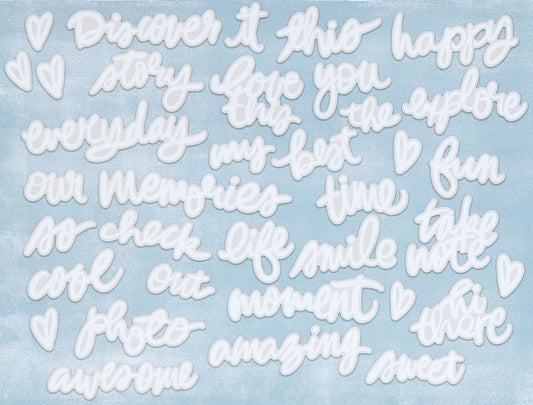 Discover it this happy
story love this you the explore
everyday my best fun
our memories time
so check life smile take note
cool out moment hi there
photo amazing
awesome sweet